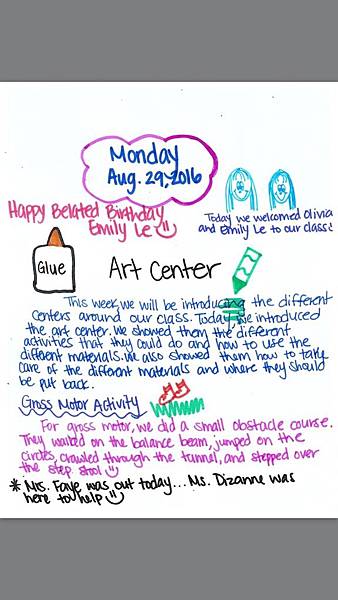 Monday
Aug. 29, 2016
Happy Belated Birthday
Emily Le
Today we welcomed Olivia
and Emily Le to our class!
Glue
Art Center
This week, we will be introducing the different
centers around our class. Today, we introduced
the art center. We showed them the different
activities that they could do and how to use the
different materials. We also showed them how to take
care of the different materials and where they should
be put back.
Gross Motor Activity
For gross motor, we did a small obstacle course.
They walked on the balance beam, jumped on the
circles, crawled through the tunnel, and stepped over
the step stool
* Ms. Faye was out today... Ms. Dizanne was
here to help